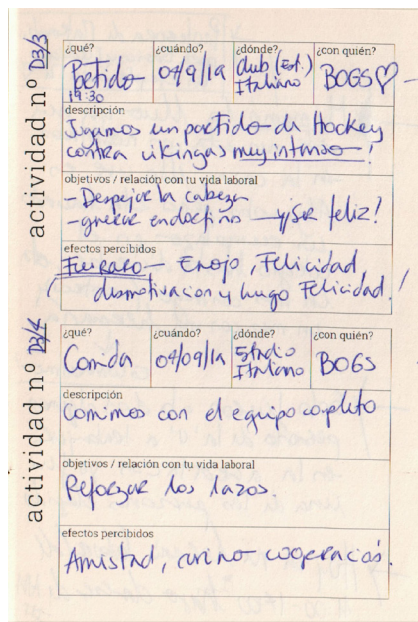 actividad nº D3/3
¿qué? ¿cuándo? ¿dónde? ¿con quién?
Partido 04/9/19 club (Est.) BOGS♡
19:30 Italiano
descripción
Jugamos un partido de Hockey
contra vikingas muy intenso!
objetivos / relación con tu vida laboral
- Despejar la cabeza
- generar endorfinas → ¡Ser feliz!
efectos percibidos
Fui RARO - Enojo, Felicidad,
desmotivacion y luego Felicidad!
actividad nº D3/4
¿qué? ¿cuándo? ¿dónde? ¿con quién?
Comida 04/09/19 Estadio BOGS
Italiano
descripción
Comimos con el equipo completo
objetivos / relación con tu vida laboral
Reforzar los lazos.
efectos percibidos
Amistad, cariño cooperación.